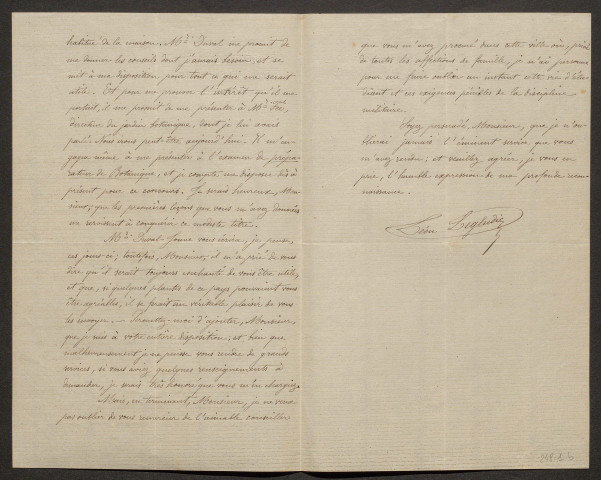 habitué de la maison. Mr Duval me promit de
me donner les conseils dont j'aurais besoin, et se
mit à ma disposition pour tout ce qui me serait
utile. Et pour me prouver l'intérêt qu'il me
portait, il me promit de me présenter à Mr
directeur du jardin botanique, dont je lui avais
parlé. Nous irons peut-être aujourd'hui. Il m'en-
gagea même à me présenter à l'examen de prépa-
rateur de Botanique, et je compte me disposer dès à
présent pour ce concours. Je serais heureux, Mon-
sieur, que les premières leçons que vous m'avez données
me servissent à conquérir ce modeste titre.
Mr Duval-Jouve vous écrira, je pense,
ces jours-ci; toutefois, Monsieur, il m'a prié de vous
dire qu'il serait toujours enchanté de vous être utile,
et que, si quelques plantes de ce pays pouvaient vous
être agréables, il se ferait un véritable plaisir de vous
les envoyer. — Permettez-moi d'ajouter, Monsieur,
que je suis à votre entière disposition; et bien que
malheureusement je ne puisse vous rendre de grands
services, si vous aviez quelques renseignements à
demander, je serais très honoré que vous m'en chargiez.
Mais, en terminant, Monsieur, je ne veux
pas oublier de vous remercier de l'aimable conseiller
que vous m'avez procuré dans cette ville où, privé
de toutes les affections de famille, je n'ai personne
pour me faire oublier un instant cette vie d'étu-
diant et les exigences pénibles de la discipline
militaire.
Soyez persuadé, Monsieur, que je n'ou-
blierai jamais l'éminent service que vous
m'avez rendu; et veuillez agréer, je vous en
prie, l'humble expression de ma profonde recon-
naissance.
Léon Legludic